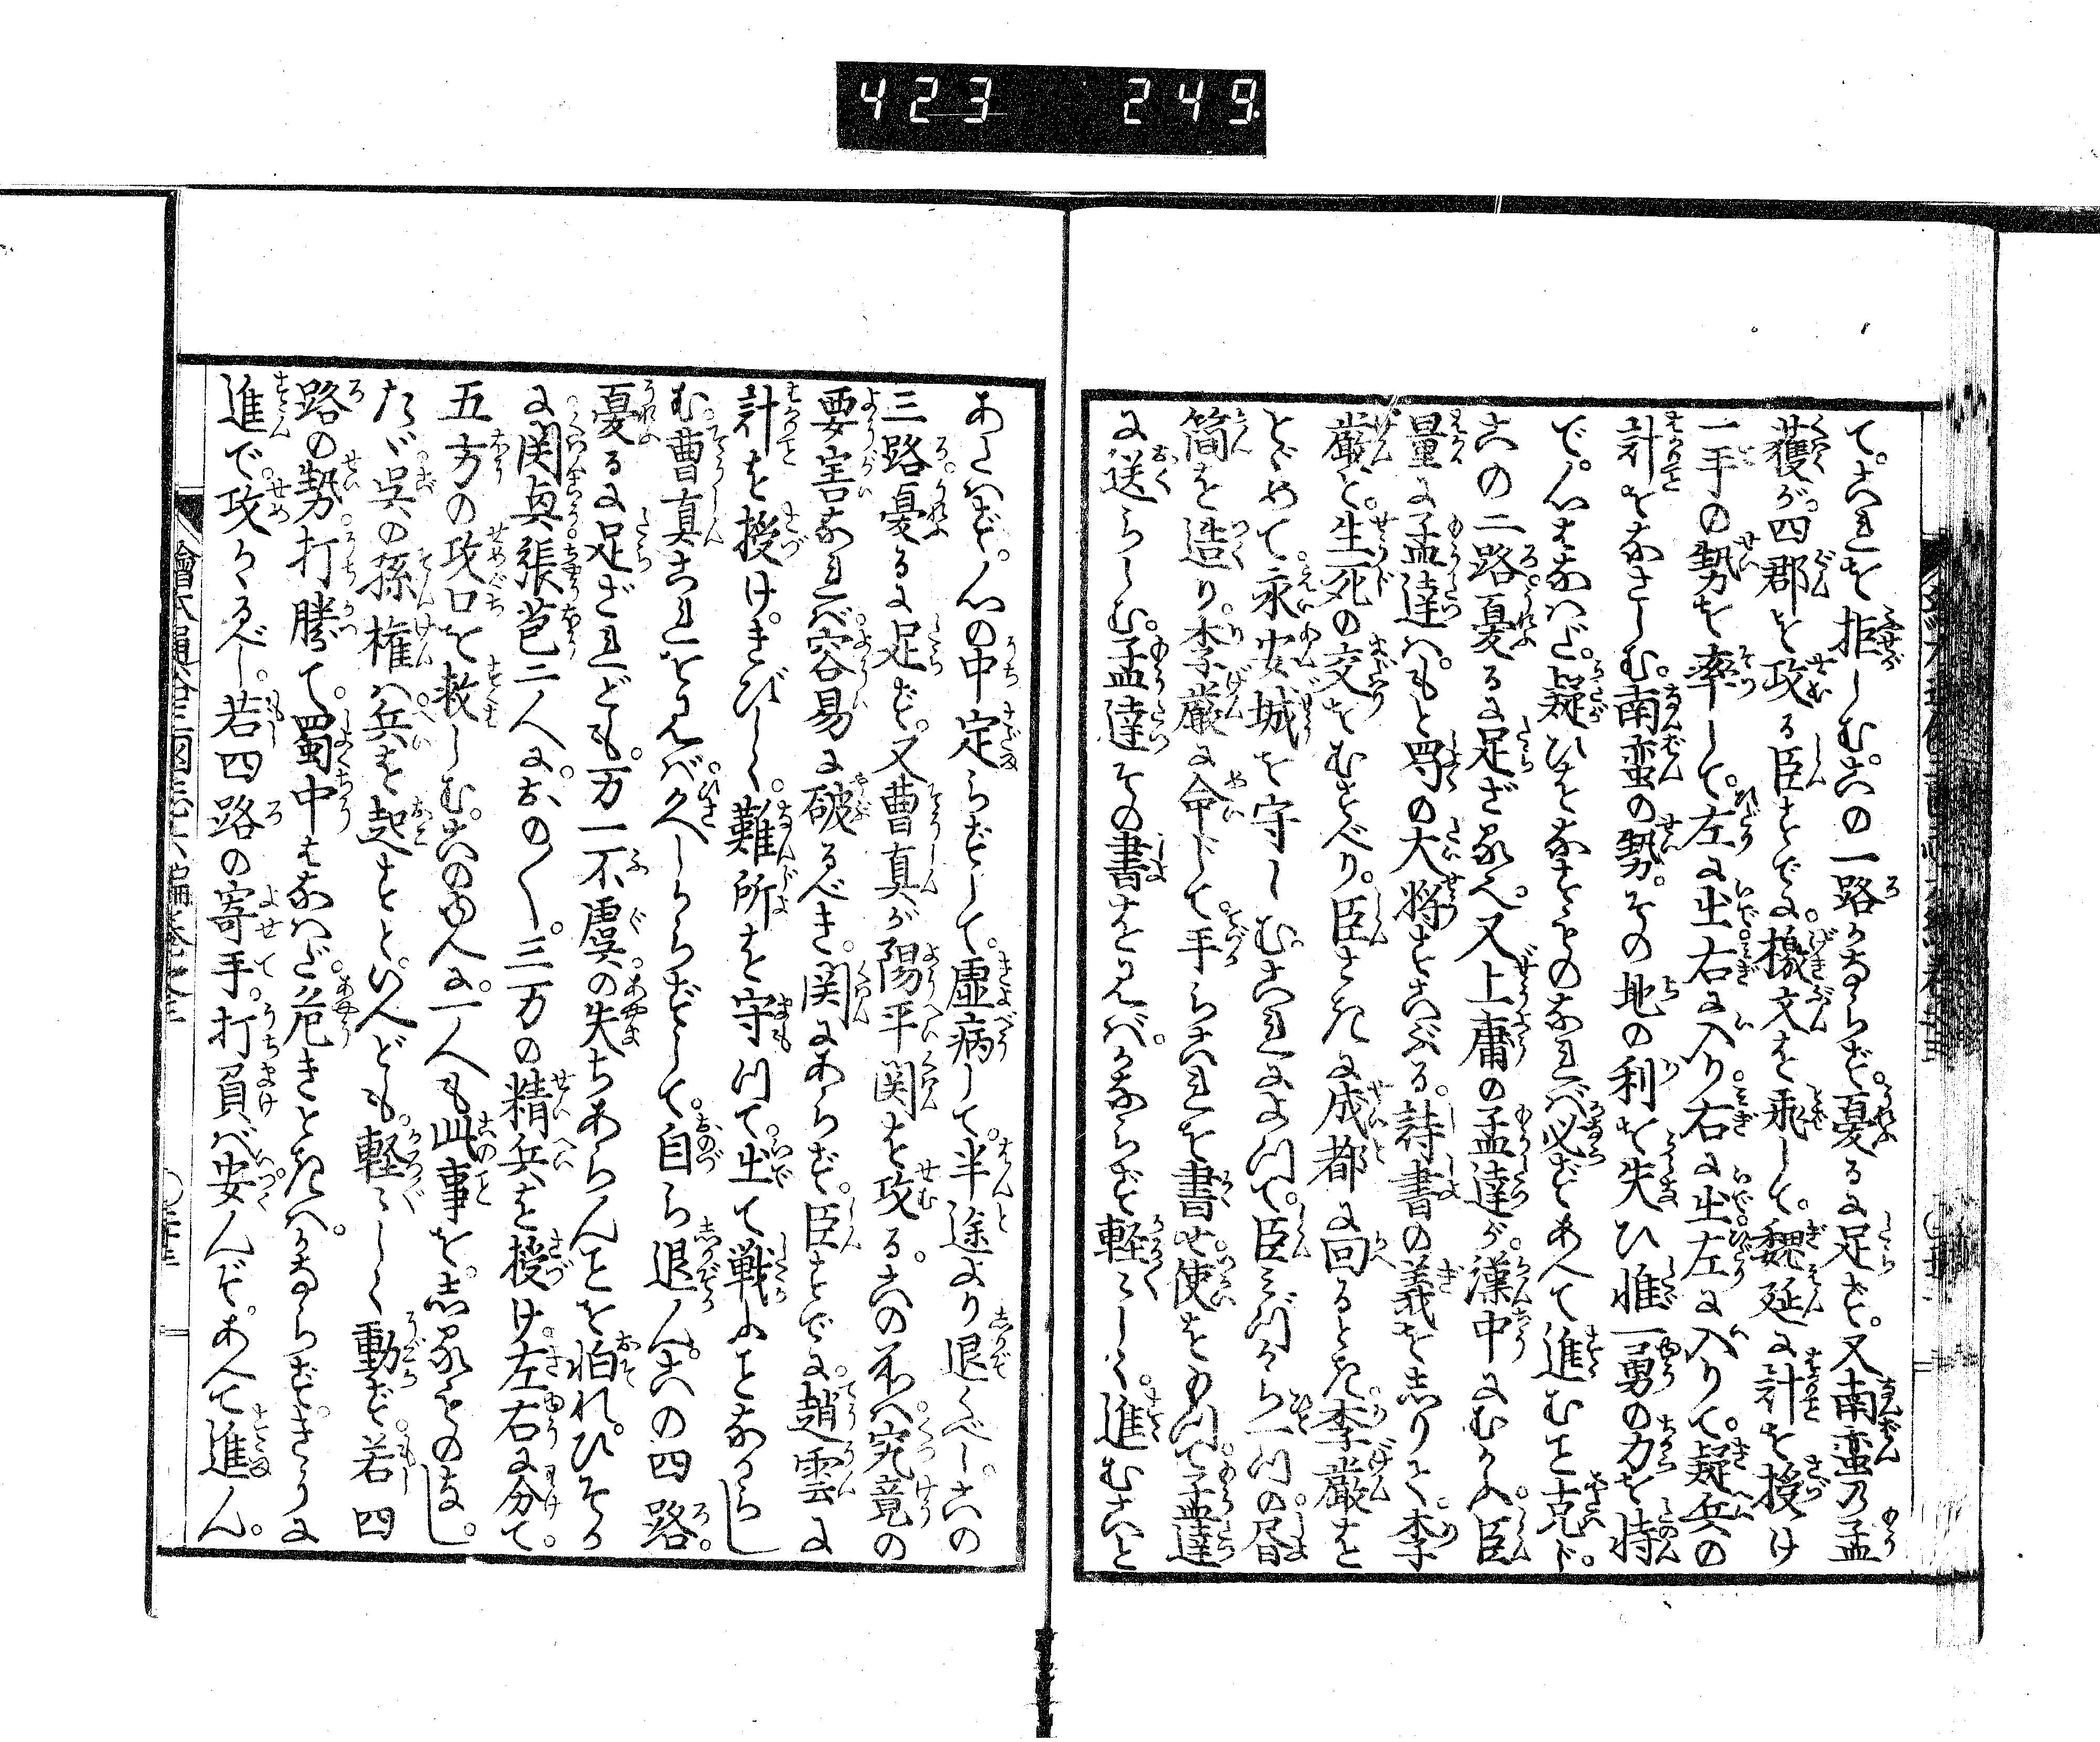 423 249
て。これを拒しむ。この一路かならず。憂るに足ず。又南蛮乃孟
獲が。四郡を攻る。臣すでに。檄文を飛して。魏延に計を授け
一手の勢を率して。左に出右に入り。右に出左に入りて。疑兵の
計をなさしむ。南蛮の勢。その地の利を失ひ惟一勇の力を恃
で。心はなはだ。疑ひをなすものなれば必ずあへて進むこと克ド。
この二路憂るに足ざるべ。又上庸の孟達が。漢中にむかふ。臣
量に孟達は。もと蜀の大将をこぶる。詩書の義をしりて。李
厳と。生死の交をむすべり。臣さきに成都に回るとき。李厳を
とゞめて。永安城を守しむ。これによつて。臣みづから一つの。書
簡を造り。李厳に命じて。手らこれを書せ。使をもつて孟達
に送らしむ。孟達その書を見ば。かならず軽〻しく。進むこと
あたはず。心の中定らずして。虚病して。半途より退くべし。この
三路。憂るに足ず。又曹真が陽平関を攻る。この所へ。究竟の
要害なれば。容易に破るべき。関にあらず。臣すでに。趙雲に
計を授け。きびしく。難所を守つて。出て戦ふことなからし
む。曹真これを見ば。久しからずして。自ら退ん。この四路。
憂るに足ざれども。万一不虞の。失ちあらんことを怕れ。ひそか
に。関興。張苞二人に。おの〱。三万の精兵を授け。左右に分て。
五方の攻口を救しむ。このゆへに。一人も此事を。しるものなし。
たゞ。呉の孫権は。兵を起すと。いへども。軽〻しく動ず。若四
路の勢。打勝て。蜀中はなはだ。危きときは。かならず。きたりに
進で。攻かゝるべし。若四路の寄手。打負ば。安んぞ。あへて進ん。